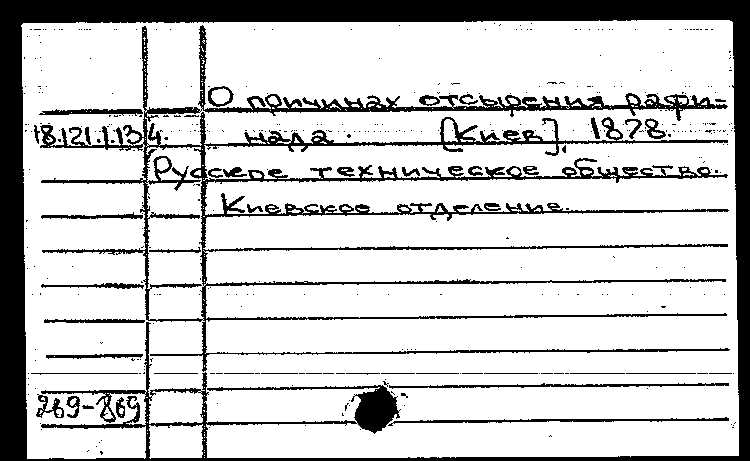 О причинах отсырения рафи-
18.121.1.134. нада. [Киев], 1878.
Русское техническое общество.
Киевское отделение.
269-869